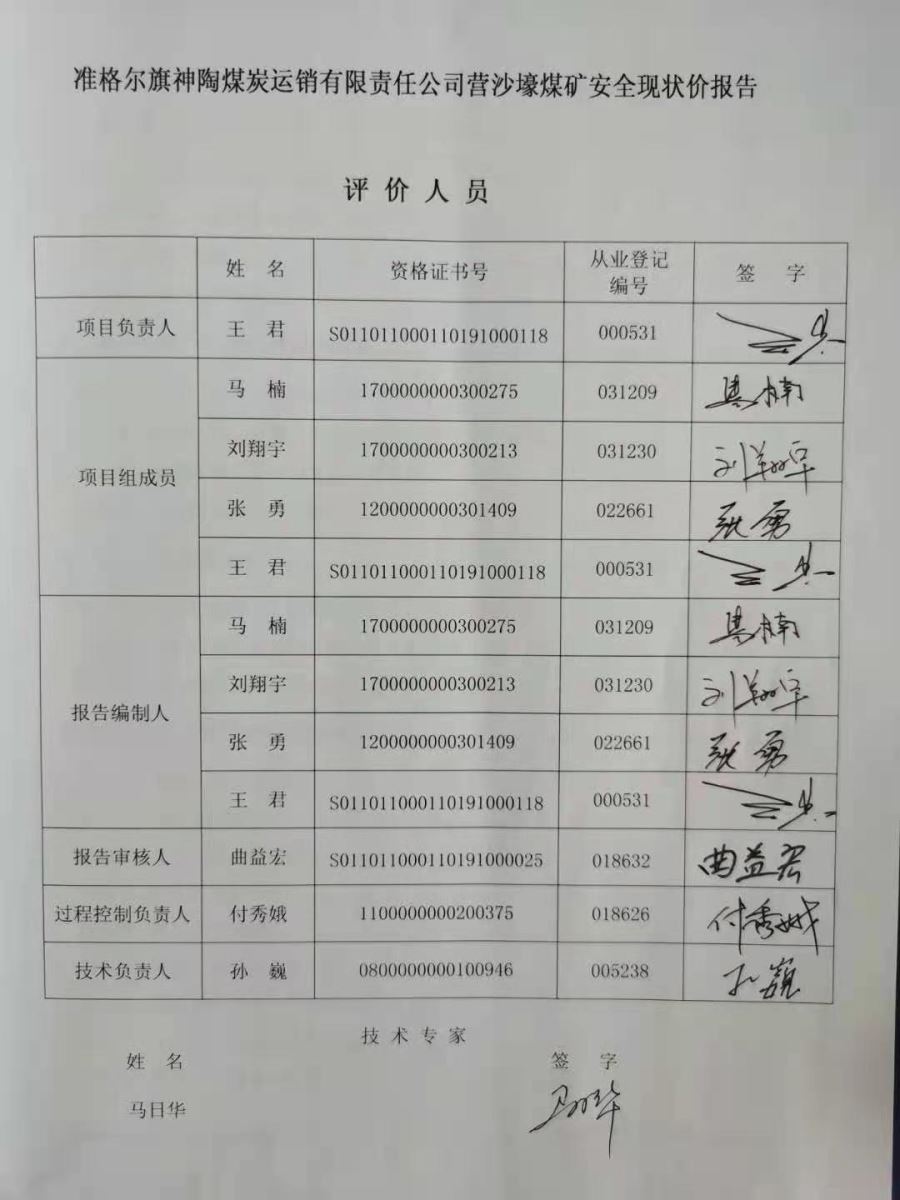 准格尔旗神陶煤炭运销有限责任公司营沙壕煤矿安全现状价报告
评价人员
姓 名 资格证书号 从业登记编号 签 字
项目负责人 王 君 S011011000110191000118 000531 王君
项目组成员 马 楠 1700000000300275 031209 马楠
刘翔宇 1700000000300213 031230 刘翔宇
张 勇 1200000000301409 022661 张勇
王 君 S011011000110191000118 000531 王君
报告编制人 马 楠 1700000000300275 031209 马楠
刘翔宇 1700000000300213 031230 刘翔宇
张 勇 1200000000301409 022661 张勇
王 君 S011011000110191000118 000531 王君
报告审核人 曲益宏 S011011000110191000025 018632 曲益宏
过程控制负责人 付秀娥 1100000000200375 018626 付秀娥
技术负责人 孙 巍 0800000000100946 005238 孙巍
技术专家
姓 名 签 字
马日华 马日华